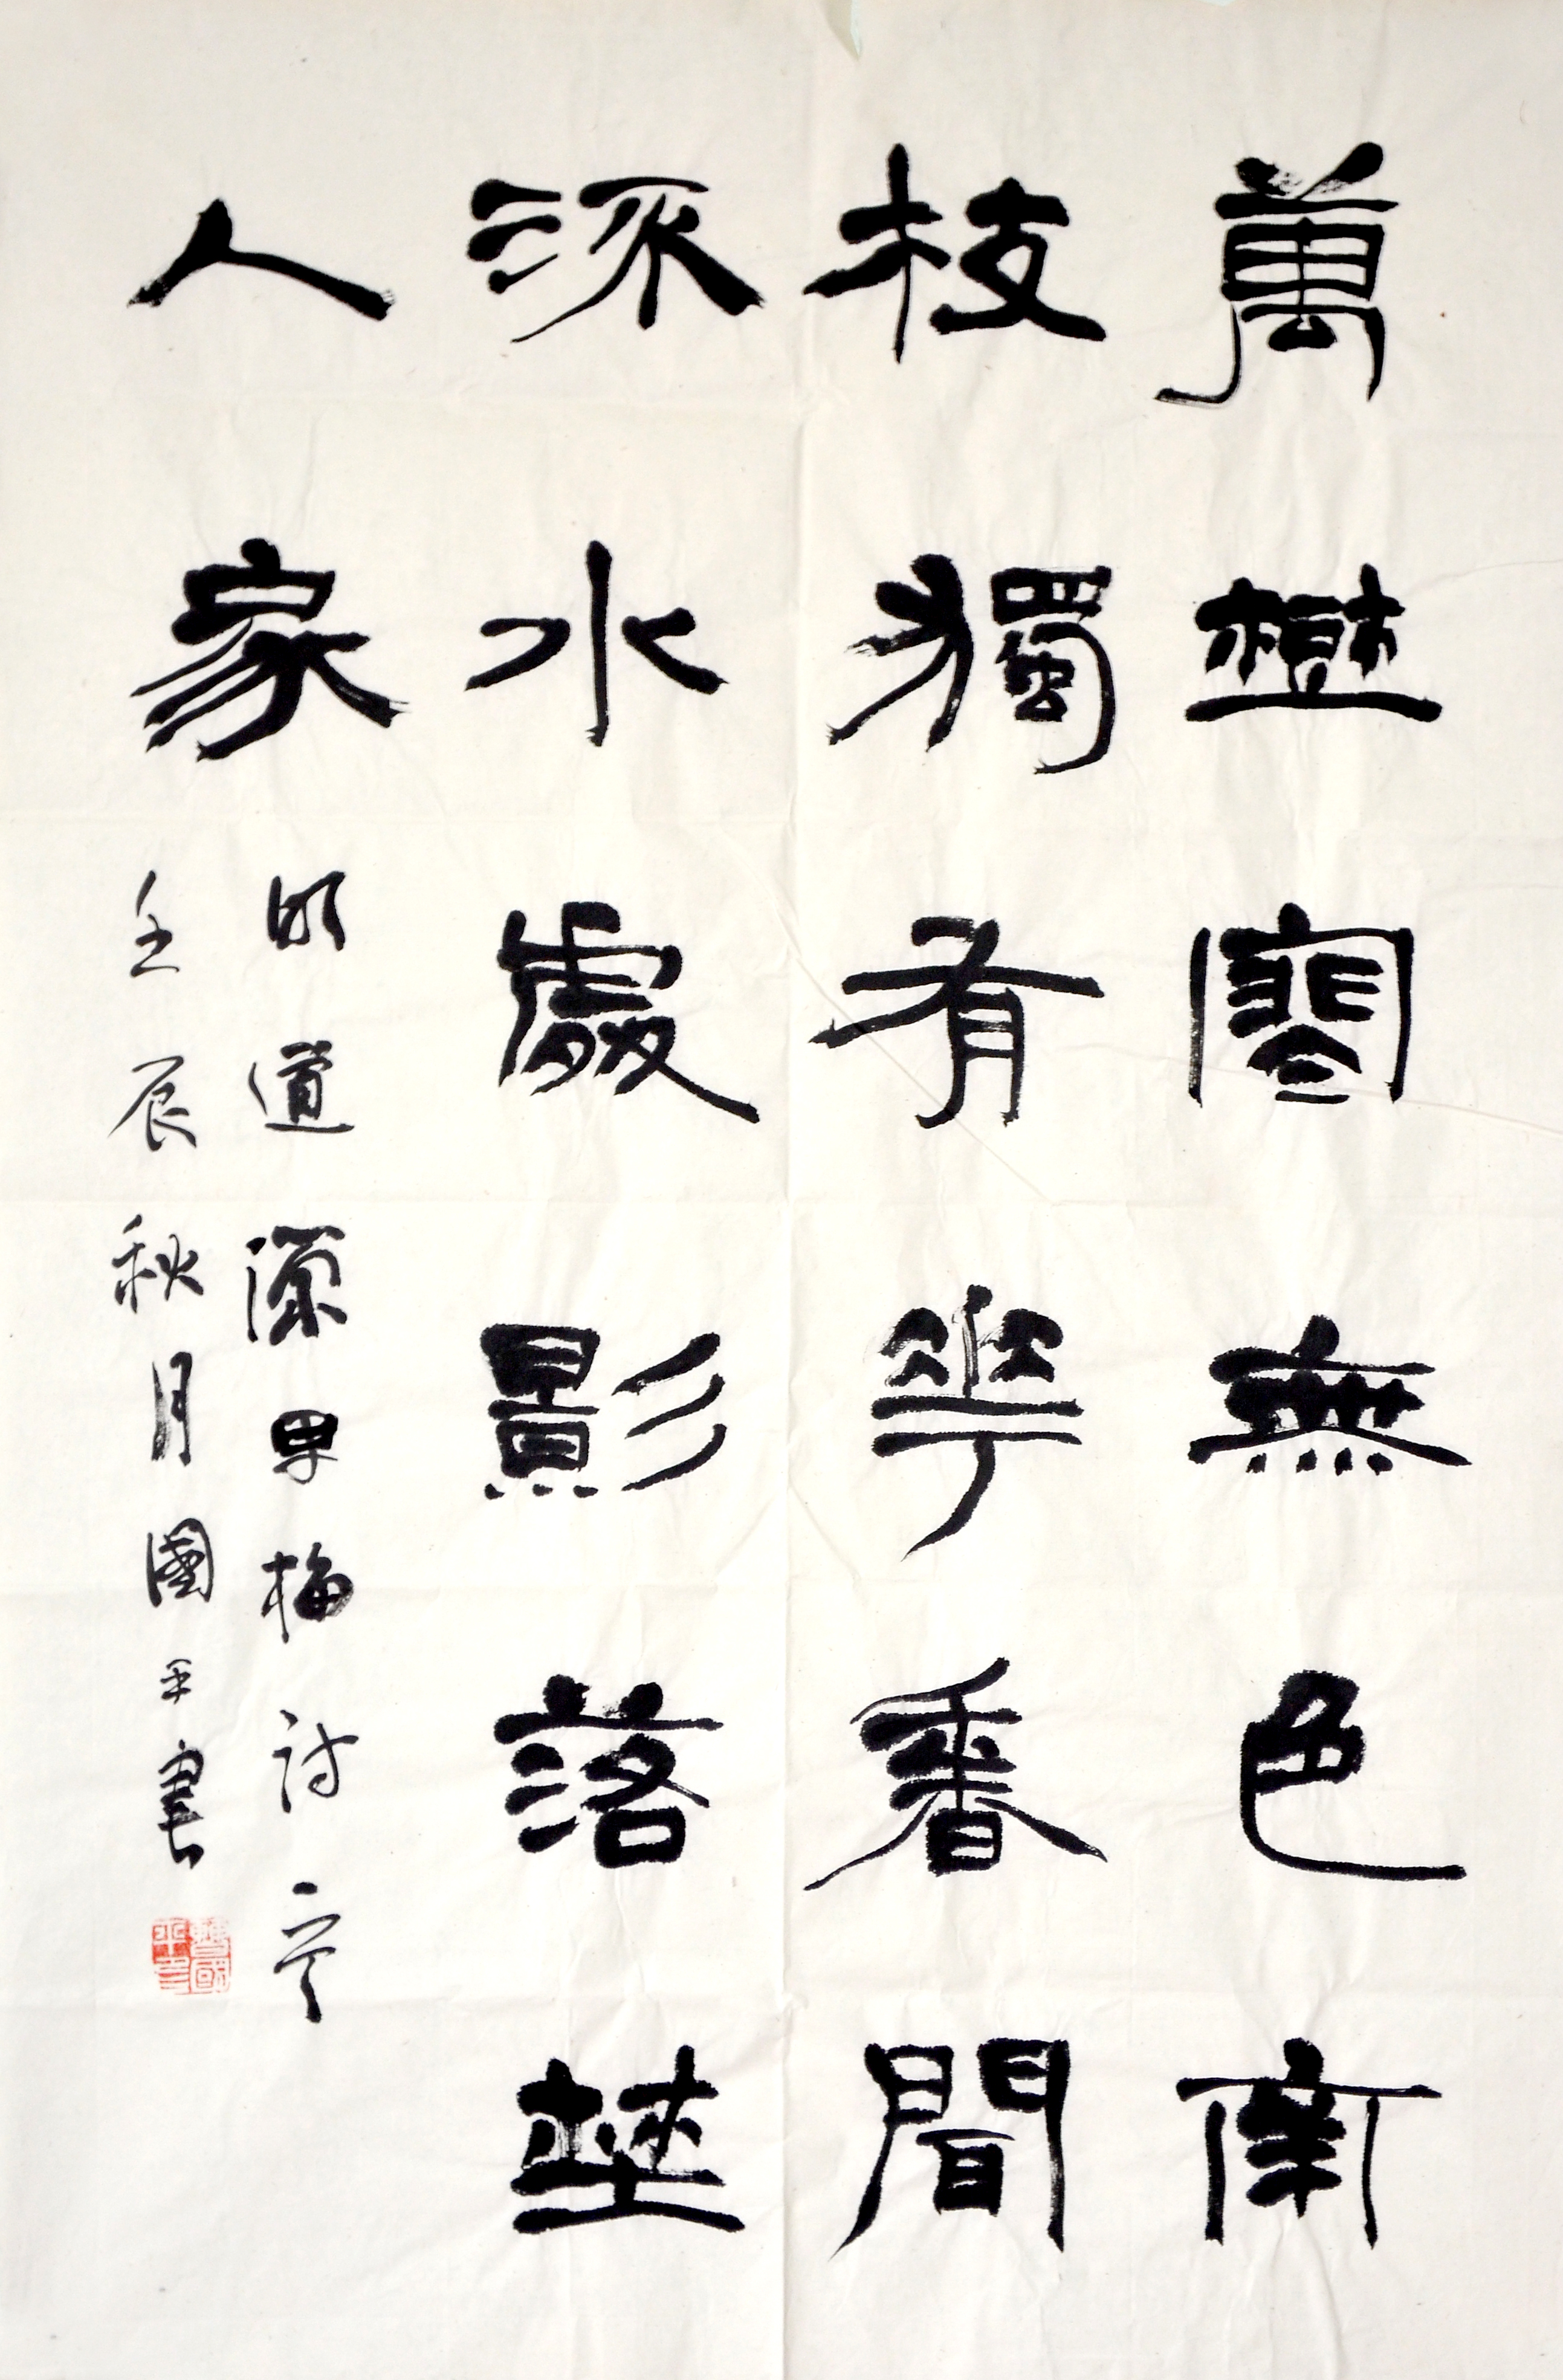 萬樹寒無色南
枝獨有華香聞
流水處影落埜
人家
明道源早梅詩意
壬辰秋月國平書